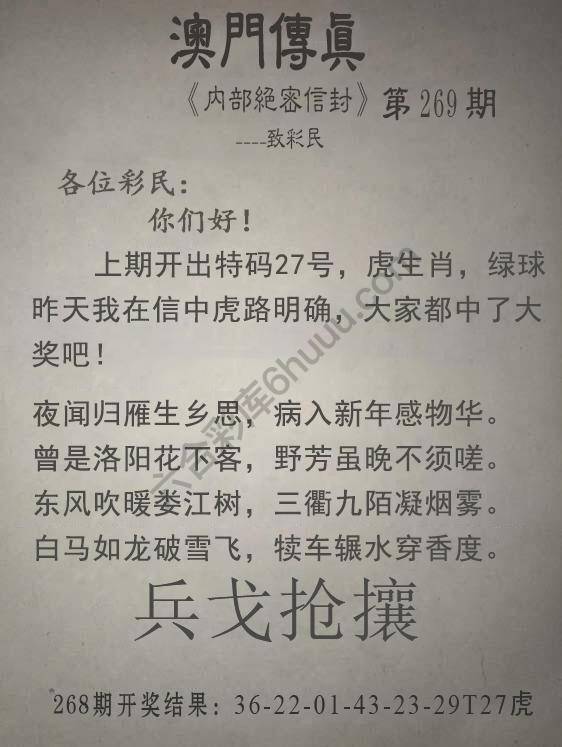 澳門傳真
《内部絕密信封》第269期
----致彩民
各位彩民：
你们好！
上期开出特码27号，虎生肖，绿球
昨天我在信中虎路明确，大家都中了大
奖吧！
夜闻归雁生乡思，病入新年感物华。
曾是洛阳花下客，野芳虽晚不须嗟。
东风吹暖娄江树，三衢九陌凝烟雾。
白马如龙破雪飞，犊车辗水穿香度。
兵戈抢攘
268期开奖结果：36-22-01-43-23-29T27虎
六合彩库6huuu.com